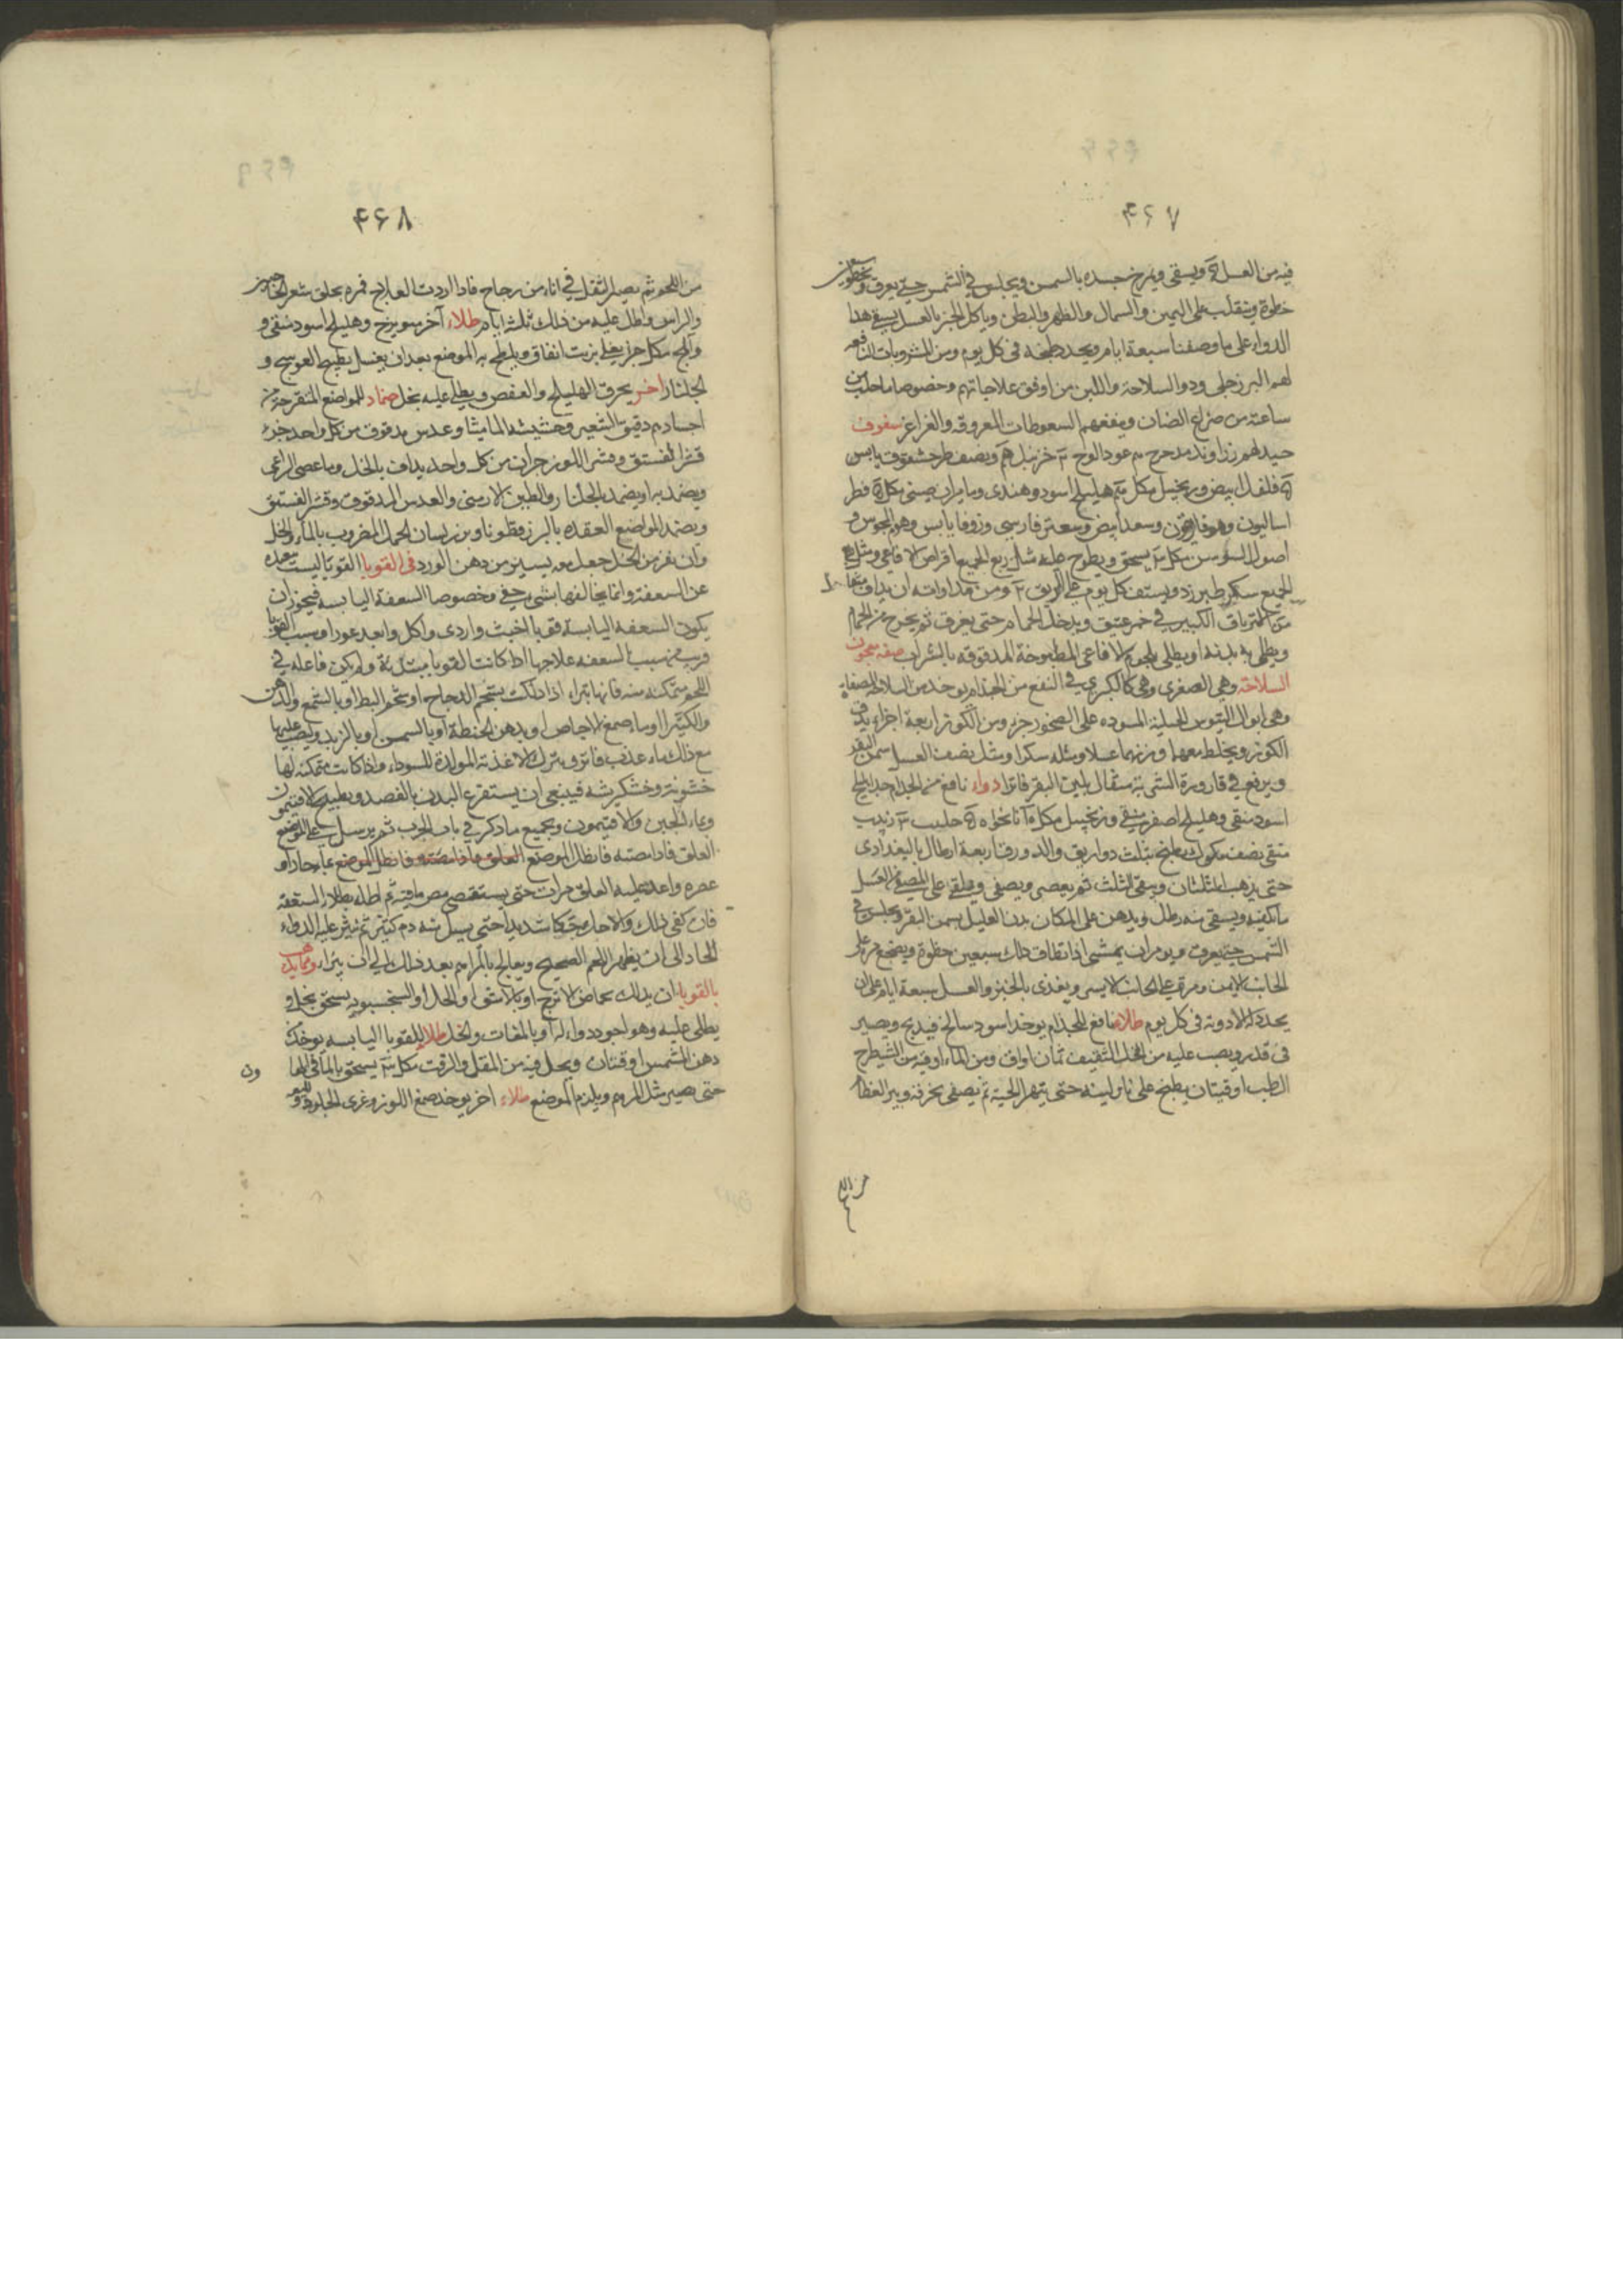 ۴۶۷
فيه من العسل ويسقى ويمرخ جسده بالسمن ويجلس في الشمس حتى يعرق ويخطو سبعين
خطوة ويتقلب على اليمين والشمال والظهر والبطن وياكل الخبز بالعسل يسقى هذا
الدواء على ما وصفنا سبعة ايام ويجدد طبخه في كل يوم ومن المشروبات النافعة
لهم البزرجلى ودواء السلاحة واللبن من اوفق علاجاتهم وخصوصا ما حلب من
ساعته من ضراع الضان وينفعهم السعوطات المعروفه والغراغر سفوف
جيد لهم زراوند مدحرج عود الوج
فلفل ابيض وزنجبيل مكل هليلج اسود وهندى
اساليون وسعد ابيض وسعتر فارسى وزوفا يابس
اصول السوسن مكل يسحق ويطرح عليه مثل ربع الجميع اقراص الافاعى ومثل
الجميع سكر طبرزد ويستف كل يوم على الريق ومن مداواته ان يداف
الترياق الكبير في خمر عتيق ويدخل الحمام حتى يعرق ثم يخرج من الحمام
ويطلى به بدنه او يطلى بلحوم الافاعى المطبوخة المدقوقه بالشراب صفه معجون
السلاحة وهى الصغرى وهى كالكبرى في النفع من الجذام يوخذ من السلاحة المصفاة
وهى ابوال التيوس الجبلية المسوده على الصخور جزء ومن الكوز اربعة اجزاء يدق
الكوز ويخلط معها وزنهما عسلا ومثله سكرا ومثل نصف العسل سمن البقر
ويرفع في قارورة الشربة مثقال بلبن البقر فاترا دواء نافع من الجذام جدا هليلج
اسود منقى وهليلج اصفر منقى وزنجبيل مكل نانخواه حليب زبيب
منقى نصف مكوك يطبخ بثلث دواريق والدورق اربعة ارطال بالبغدادى
حتى يذهب الثلثان ويبقى الثلث ثم يعصر ويصفى ويلقى على المصفى من العسل
ما يكفيه ويسقى منه رطل ويدهن على المكان بدن العليل بسمن البقر ويجلس في
الشمس حتى يعرق ويومر ان يمشى اذا اطاق ذلك سبعين خطوة ويضجع مرة على
الجانب الايمن ومرة على الجانب الايسر ويغذى بالخبز والعسل سبعة ايام على ان
يجدد له الادوية في كل يوم طلاء نافع للجذام يوخذ اسود سالخ فيذبح ويصير
في قدر ويصب عليه من الخل الثقيف ثمان اواق ومن الماء اوقيه من الشيطرج
الطب اوقيتان يطبخ على نار لينه حتى يتهرا الحية ثم يصفى بخرقه ويبرا العظام
من اللحم
۴۶۸
من اللحم ثم يصير الثفل في اناء من زجاج فاذا اردت العلاج فمره بحلق شعر الحاجبين
والراس واطل عليه من ذلك ثلثه ايام طلاء آخر ميويزج وهليلج اسود منقى و
واملج مكل جزء يغلى بزيت انفاق ويلطخ به الموضع بعد ان يغسل بطبيخ العوسج و
الجلنار اخر يحرق الهليلج والعفص ويطلى عليه بخل ضماد للمواضع المتقرحة من
اجسادهم دقيق الشعير وحشيشه المامیثا وعدس مدقوق من كل واحد جزء
قشر الفستق وقشر اللوز جزءان من كل واحد يداف بالخل وماء عصى الراعى
ويضمد به او يضمد الجلنار والطين الارمنى والعدس المدقوق وقشر الفستق
ويضمد المواضع العقده بالبزرقطونا وبزر لسان الحمل المضروب بالماء والخل
وان نفر من الخل جعل معه يسير من دهن الورد في القوبا القوبا ليست ببعيده
عن السعفة وانما يخالفها بشى خفى وخصوصا السعفة اليابسه فيجوز ان
يكون السعفه اليابسة قوبا اخبث واردى واكل وابعد غورا وسبب القوبا
قريب من سبب السعفه علاجها اذا كانت القوبا مبتدئة ولم يكن فاعله في
اللحم متمكنه منه فانها تبراء اذا دلكت بشحم الدجاج او شحم البط او بالشمع والدهن
والكثيرا او ماء صمغ الاجاص او بدهن الحنطة او بالسمن او بالزبد وليصب عليها
مع ذلك ماء عذب فاتر ويترك الاغذية المولدة للسوداء واذا كانت متمكنه لها
خشونة وخشكريشه فينبغى ان يستفرغ البدن بالفصد وبطبيخ الافتيمون
وماء الجبن والافتيمون وبجميع ما ذكر في باب الجرب ثم يرسل على الموضع
العلق فاذا مصته فانطل الموضع العلق فاذا مصته فانطل الموضع بماء حار او
عصره واعد عليه العلق مرات حتى يستقصى مص ما فيه ثم اطله بطلاء السعفه
فان كفى ذلك والا حك حكا شديدا حتى يسيل منه دم كثير ثم ينثر عليه الدواء
الحاد الى ان يظهر اللحم الصحيح ويعالج بالمراهم بعد ذلك الى ان يبراء ومما يذهب
بالقوبا ان يدلك بحماض الاترج او بالاشق والخل او السنجسبويه يسحق بخل و
يطلى عليه وهو اجود دواء له او بالمغات والخل طلاء للقوبا اليابسه يوخذ
دهن المشمس اوقتان ويحل فيه من المقل والزفت مكل يسحق بالماء
حتى يصير مثل المرهم ويلزم الموضع طلاء اخر يوخذ صمغ اللوز وغرى الجلود